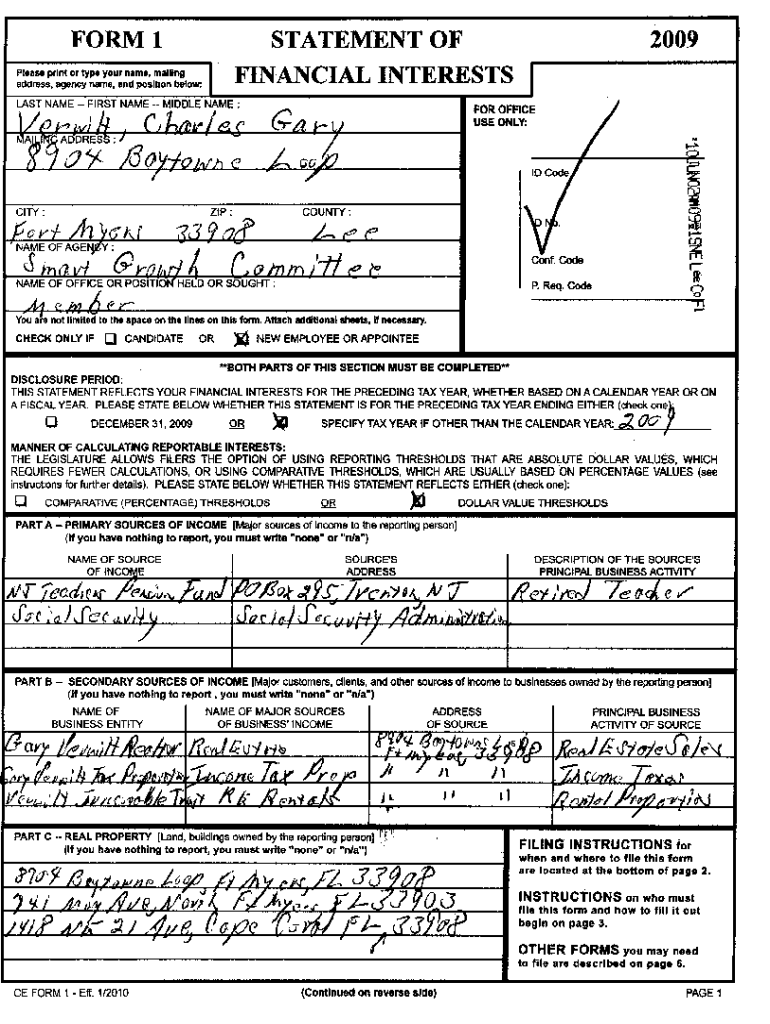 FORM 1 STATEMENT OF 2009
Please print or type your name, mailing
address, agency name, and position below:
FINANCIAL INTERESTS
LAST NAME -- FIRST NAME -- MIDDLE NAME :
Vermilt, Charles Gary
MAILING ADDRESS :
8904 Baytowne Loop
CITY : ZIP : COUNTY :
Fort Myers 33908 Lee
NAME OF AGENCY :
Smart Growth Committee
NAME OF OFFICE OR POSITION HELD OR SOUGHT :
Member
You are not limited to the space on the lines on this form. Attach additional sheets, if necessary.
CHECK ONLY IF CANDIDATE OR NEW EMPLOYEE OR APPOINTEE
FOR OFFICE
USE ONLY:
ID Code
ID No.
Conf. Code
P. Req. Code
**BOTH PARTS OF THIS SECTION MUST BE COMPLETED**
DISCLOSURE PERIOD:
THIS STATEMENT REFLECTS YOUR FINANCIAL INTERESTS FOR THE PRECEDING TAX YEAR, WHETHER BASED ON A CALENDAR YEAR OR ON
A FISCAL YEAR. PLEASE STATE BELOW WHETHER THIS STATEMENT IS FOR THE PRECEDING TAX YEAR ENDING EITHER (check one):
DECEMBER 31, 2009 OR SPECIFY TAX YEAR IF OTHER THAN THE CALENDAR YEAR: 2009
MANNER OF CALCULATING REPORTABLE INTERESTS:
THE LEGISLATURE ALLOWS FILERS THE OPTION OF USING REPORTING THRESHOLDS THAT ARE ABSOLUTE DOLLAR VALUES, WHICH
REQUIRES FEWER CALCULATIONS, OR USING COMPARATIVE THRESHOLDS, WHICH ARE USUALLY BASED ON PERCENTAGE VALUES (see
instructions for further details). PLEASE STATE BELOW WHETHER THIS STATEMENT REFLECTS EITHER (check one):
COMPARATIVE (PERCENTAGE) THRESHOLDS OR DOLLAR VALUE THRESHOLDS
PART A -- PRIMARY SOURCES OF INCOME [Major sources of income to the reporting person]
(If you have nothing to report, you must write "none" or "n/a")
NAME OF SOURCE SOURCE'S DESCRIPTION OF THE SOURCE'S
OF INCOME ADDRESS PRINCIPAL BUSINESS ACTIVITY
NJ Teachers Pension Fund PO Box 295, Trenton, NJ Retired Teacher
Social Security Social Security Administration
PART B -- SECONDARY SOURCES OF INCOME [Major customers, clients, and other sources of income to businesses owned by the reporting person]
(If you have nothing to report , you must write "none" or "n/a")
NAME OF NAME OF MAJOR SOURCES ADDRESS PRINCIPAL BUSINESS
BUSINESS ENTITY OF BUSINESS' INCOME OF SOURCE ACTIVITY OF SOURCE
Gary Vermilt Realtor Real Estate 8904 Baytowne Loop Ft Myers, 33908 Real Estate Sales
Gary Vermilt Tax Preparation Income Tax Prep " " " Income Taxes
Vermilt Irrevocable Trust RE Rentals " " " Rental Properties
PART C -- REAL PROPERTY [Land, buildings owned by the reporting person]
(If you have nothing to report, you must write "none" or "n/a")
8904 Baytowne Loop, Ft Myers, FL 33908
741 May Ave, North Ft Myers FL 33903
1418 NE 21 Ave, Cape Coral FL, 33908
FILING INSTRUCTIONS for
when and where to file this form
are located at the bottom of page 2.
INSTRUCTIONS on who must
file this form and how to fill it out
begin on page 3.
OTHER FORMS you may need
to file are described on page 6.
CE FORM 1 - Eff. 1/2010 (Continued on reverse side) PAGE 1